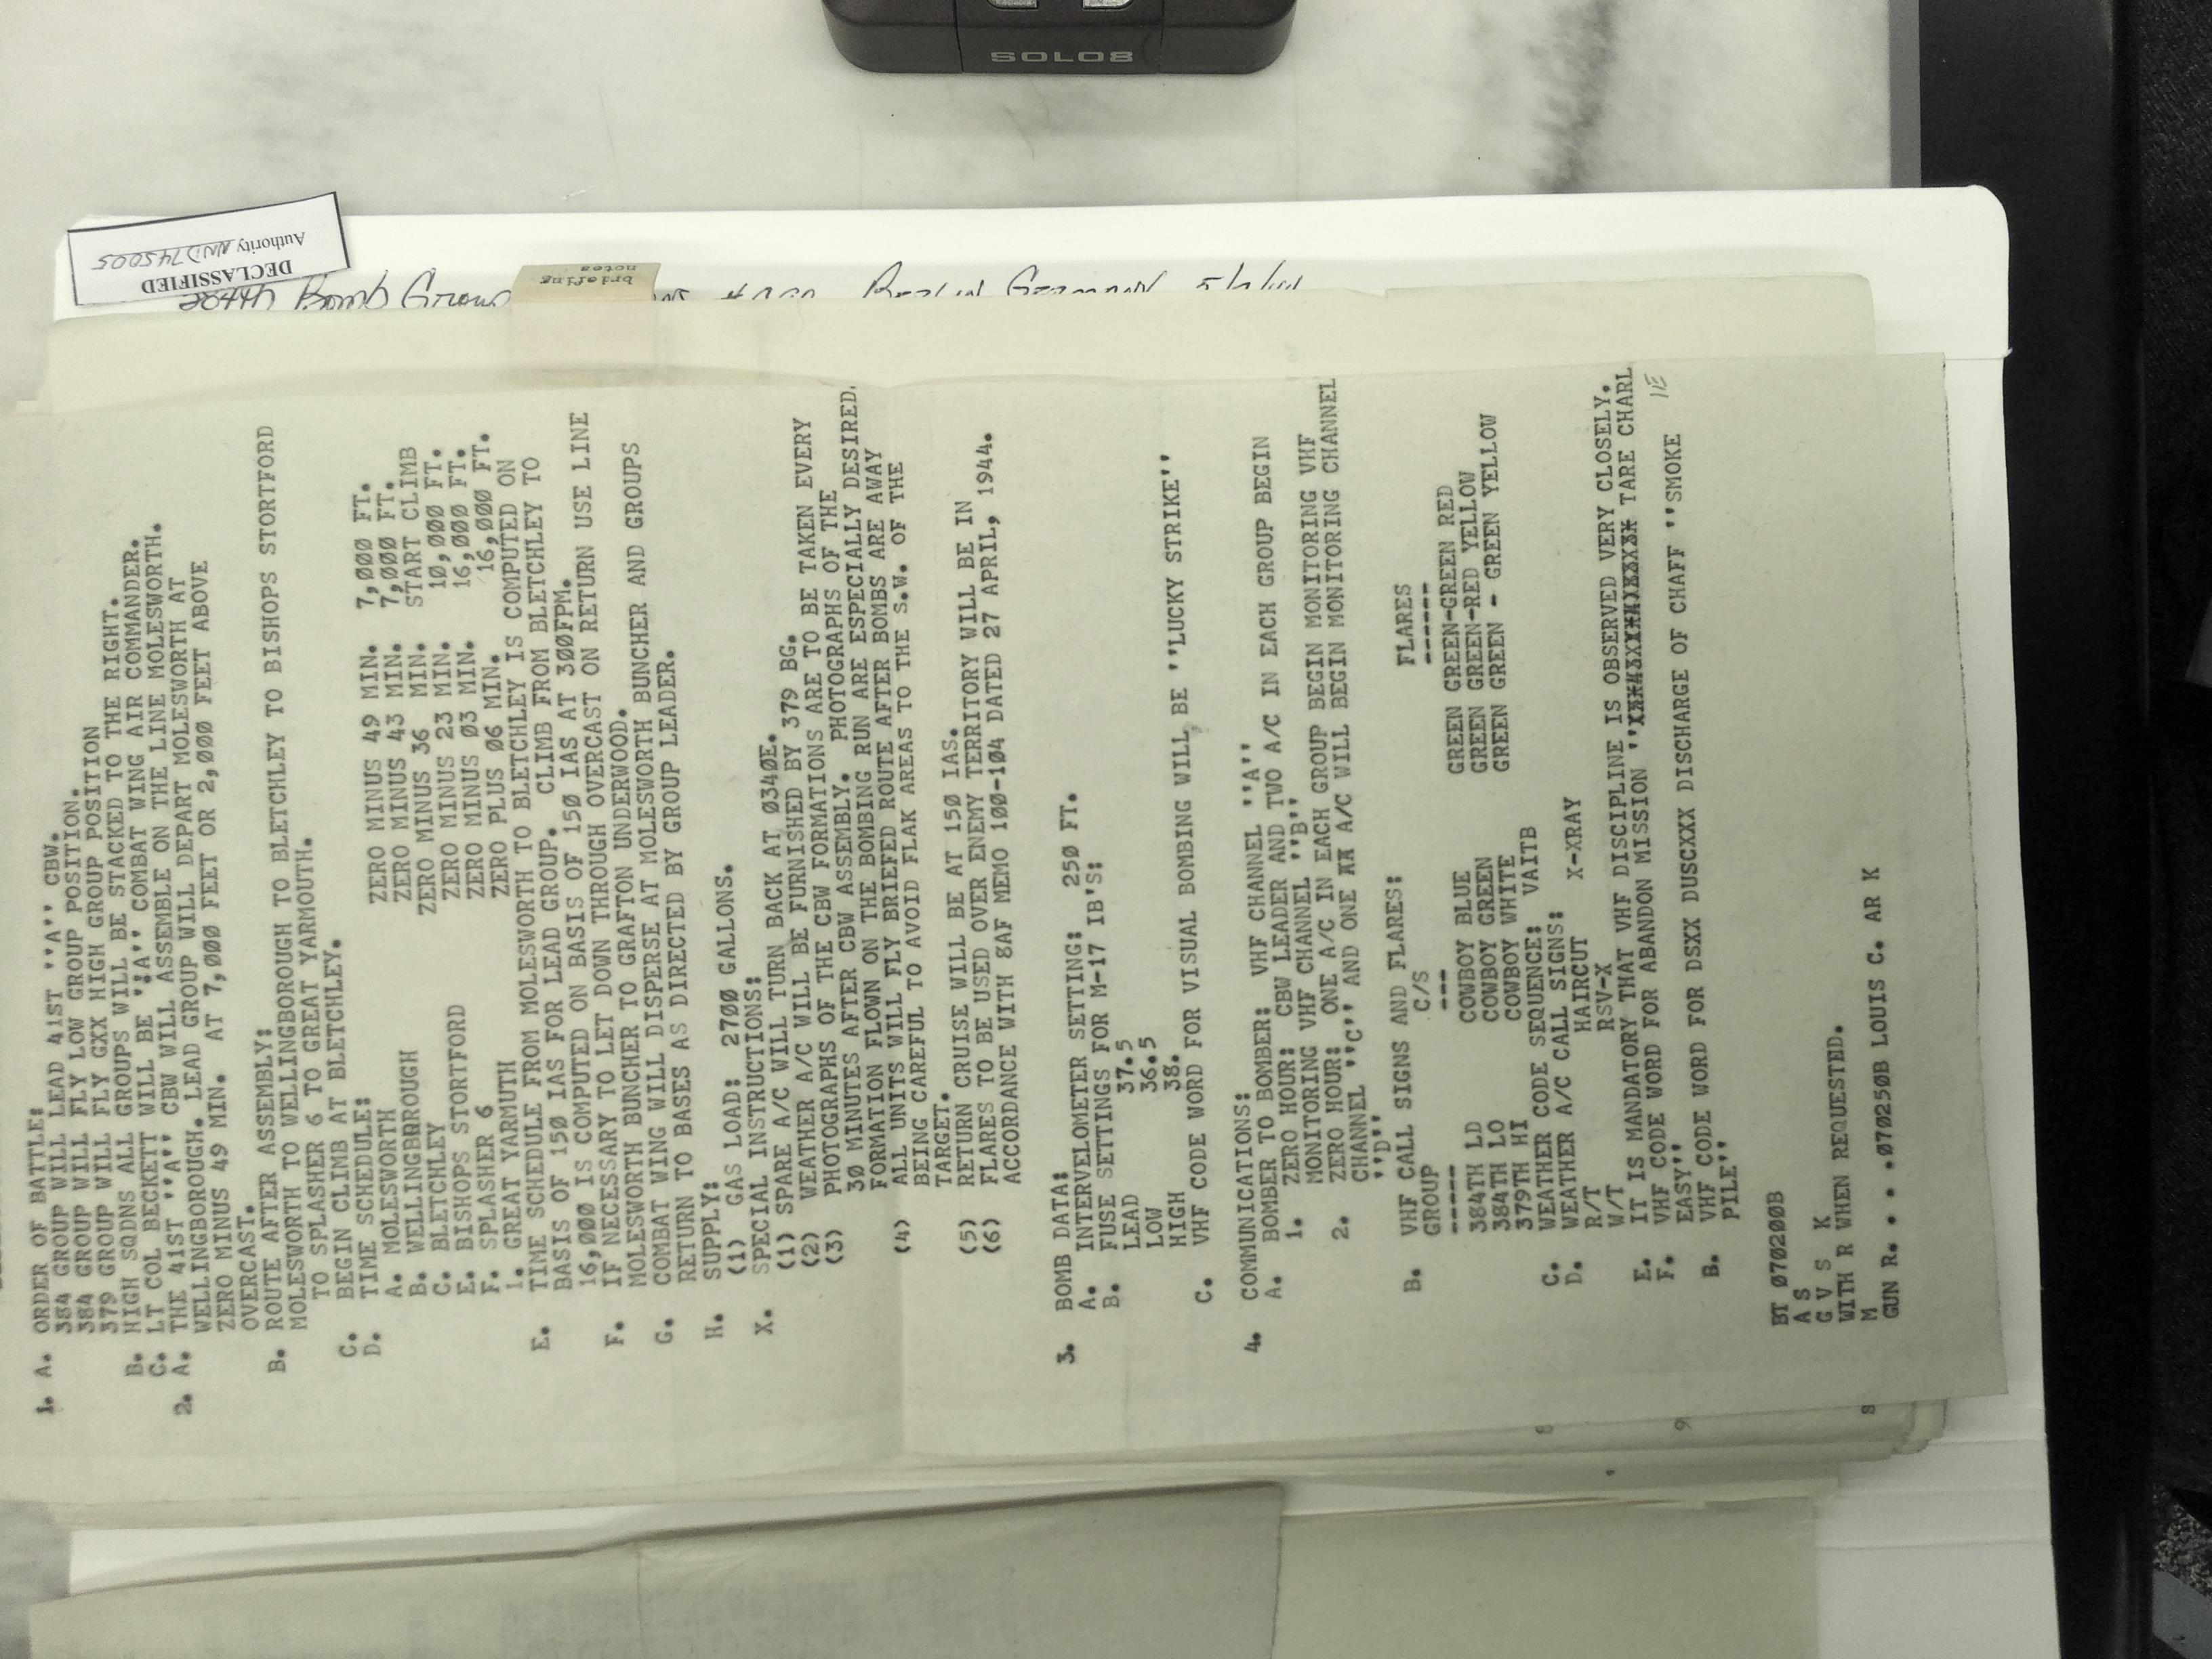 SOLO8
DECLASSIFIED
Authority NND 745005
384th Bomb Group Berlin Germany 5/7/44
briefing
notes
1. A. ORDER OF BATTLE:
384 GROUP WILL LEAD 41ST ''A'' CBW.
384 GROUP WILL FLY LOW GROUP POSITION.
379 GROUP WILL FLY GXX HIGH GROUP POSITION
B. HIGH SQDNS ALL GROUPS WILL BE STACKED TO THE RIGHT.
C. LT COL BECKETT WILL BE ''A'' COMBAT WING AIR COMMANDER.
2. A. THE 41ST ''A'' CBW WILL ASSEMBLE ON THE LINE MOLESWORTH.
WELLINGBOROUGH. LEAD GROUP WILL DEPART MOLESWORTH AT
ZERO MINUS 49 MIN. AT 7,000 FEET OR 2,000 FEET ABOVE
OVERCAST.
B. ROUTE AFTER ASSEMBLY:
MOLESWORTH TO WELLINGBOROUGH TO BLETCHLEY TO BISHOPS STORTFORD
TO SPLASHER 6 TO GREAT YARMOUTH.
C. BEGIN CLIMB AT BLETCHLEY.
D. TIME SCHEDULE:
A. MOLESWORTH ZERO MINUS 49 MIN. 7,000 FT.
B. WELLINGBROUGH ZERO MINUS 43 MIN. 7,000 FT.
C. BLETCHLEY ZERO MINUS 36 MIN. START CLIMB
E. BISHOPS STORTFORD ZERO MINUS 23 MIN. 10,000 FT.
F. SPLASHER 6 ZERO MINUS 03 MIN. 16,000 FT.
1. GREAT YARMUTH ZERO PLUS 06 MIN. 16,000 FT.
E. TIME SCHEDULE FROM MOLESWORTH TO BLETCHLEY IS COMPUTED ON
BASIS OF 150 IAS FOR LEAD GROUP. CLIMB FROM BLETCHLEY TO
16,000 IS COMPUTED ON BASIS OF 150 IAS AT 300FPM.
F. IF NECESSARY TO LET DOWN THROUGH OVERCAST ON RETURN USE LINE
MOLESWORTH BUNCHER TO GRAFTON UNDERWOOD.
G. COMBAT WING WILL DISPERSE AT MOLESWORTH BUNCHER AND GROUPS
RETURN TO BASES AS DIRECTED BY GROUP LEADER.
H. SUPPLY:
(1) GAS LOAD: 2700 GALLONS.
X. SPECIAL INSTRUCTIONS:
(1) SPARE A/C WILL TURN BACK AT 0340E.
(2) WEATHER A/C WILL BE FURNISHED BY 379 BG.
(3) PHOTOGRAPHS OF THE CBW FORMATIONS ARE TO BE TAKEN EVERY
30 MINUTES AFTER CBW ASSEMBLY. PHOTOGRAPHS OF THE
FORMATION FLOWN ON THE BOMBING RUN ARE ESPECIALLY DESIRED.
(4) ALL UNITS WILL FLY BRIEFED ROUTE AFTER BOMBS ARE AWAY
BEING CAREFUL TO AVOID FLAK AREAS TO THE S.W. OF THE
TARGET.
(5) RETURN CRUISE WILL BE AT 150 IAS.
(6) FLARES TO BE USED OVER ENEMY TERRITORY WILL BE IN
ACCORDANCE WITH 8AF MEMO 100-104 DATED 27 APRIL, 1944.
3. BOMB DATA:
A. INTERVELOMETER SETTING: 250 FT.
B. FUSE SETTINGS FOR M-17 IB'S:
LEAD 37.5
LOW 36.5
HIGH 38.
C. VHF CODE WORD FOR VISUAL BOMBING WILL BE ''LUCKY STRIKE''
4. COMMUNICATIONS:
A. BOMBER TO BOMBER: VHF CHANNEL ''A''
1. ZERO HOUR: CBW LEADER AND TWO A/C IN EACH GROUP BEGIN
MONITORING VHF CHANNEL ''B''
2. ZERO HOUR: ONE A/C IN EACH GROUP BEGIN MONITORING VHF
CHANNEL ''C'' AND ONE A/C WILL BEGIN MONITORING CHANNEL
''D''
B. VHF CALL SIGNS AND FLARES:
GROUP C/S FLARES
----- --- ------
384TH LD COWBOY BLUE GREEN GREEN-GREEN RED
384TH LO COWBOY GREEN GREEN GREEN-RED YELLOW
379TH HI COWBOY WHITE GREEN GREEN - GREEN YELLOW
C. WEATHER CODE SEQUENCE: VAITB
D. WEATHER A/C CALL SIGNS:
R/T HAIRCUT X-XRAY
W/T RSV-X
E. IT IS MANDATORY THAT VHF DISCIPLINE IS OBSERVED VERY CLOSELY.
F. VHF CODE WORD FOR ABANDON MISSION '' TARE CHARL
IE
EASY''
B. VHF CODE WORD FOR DSXX DUSCXXX DISCHARGE OF CHAFF ''SMOKE
PILE''
BT 070200B
A S
G V S K
WITH R WHEN REQUESTED.
M
GUN R. . . .070250B LOUIS C. AR K
8
9
S